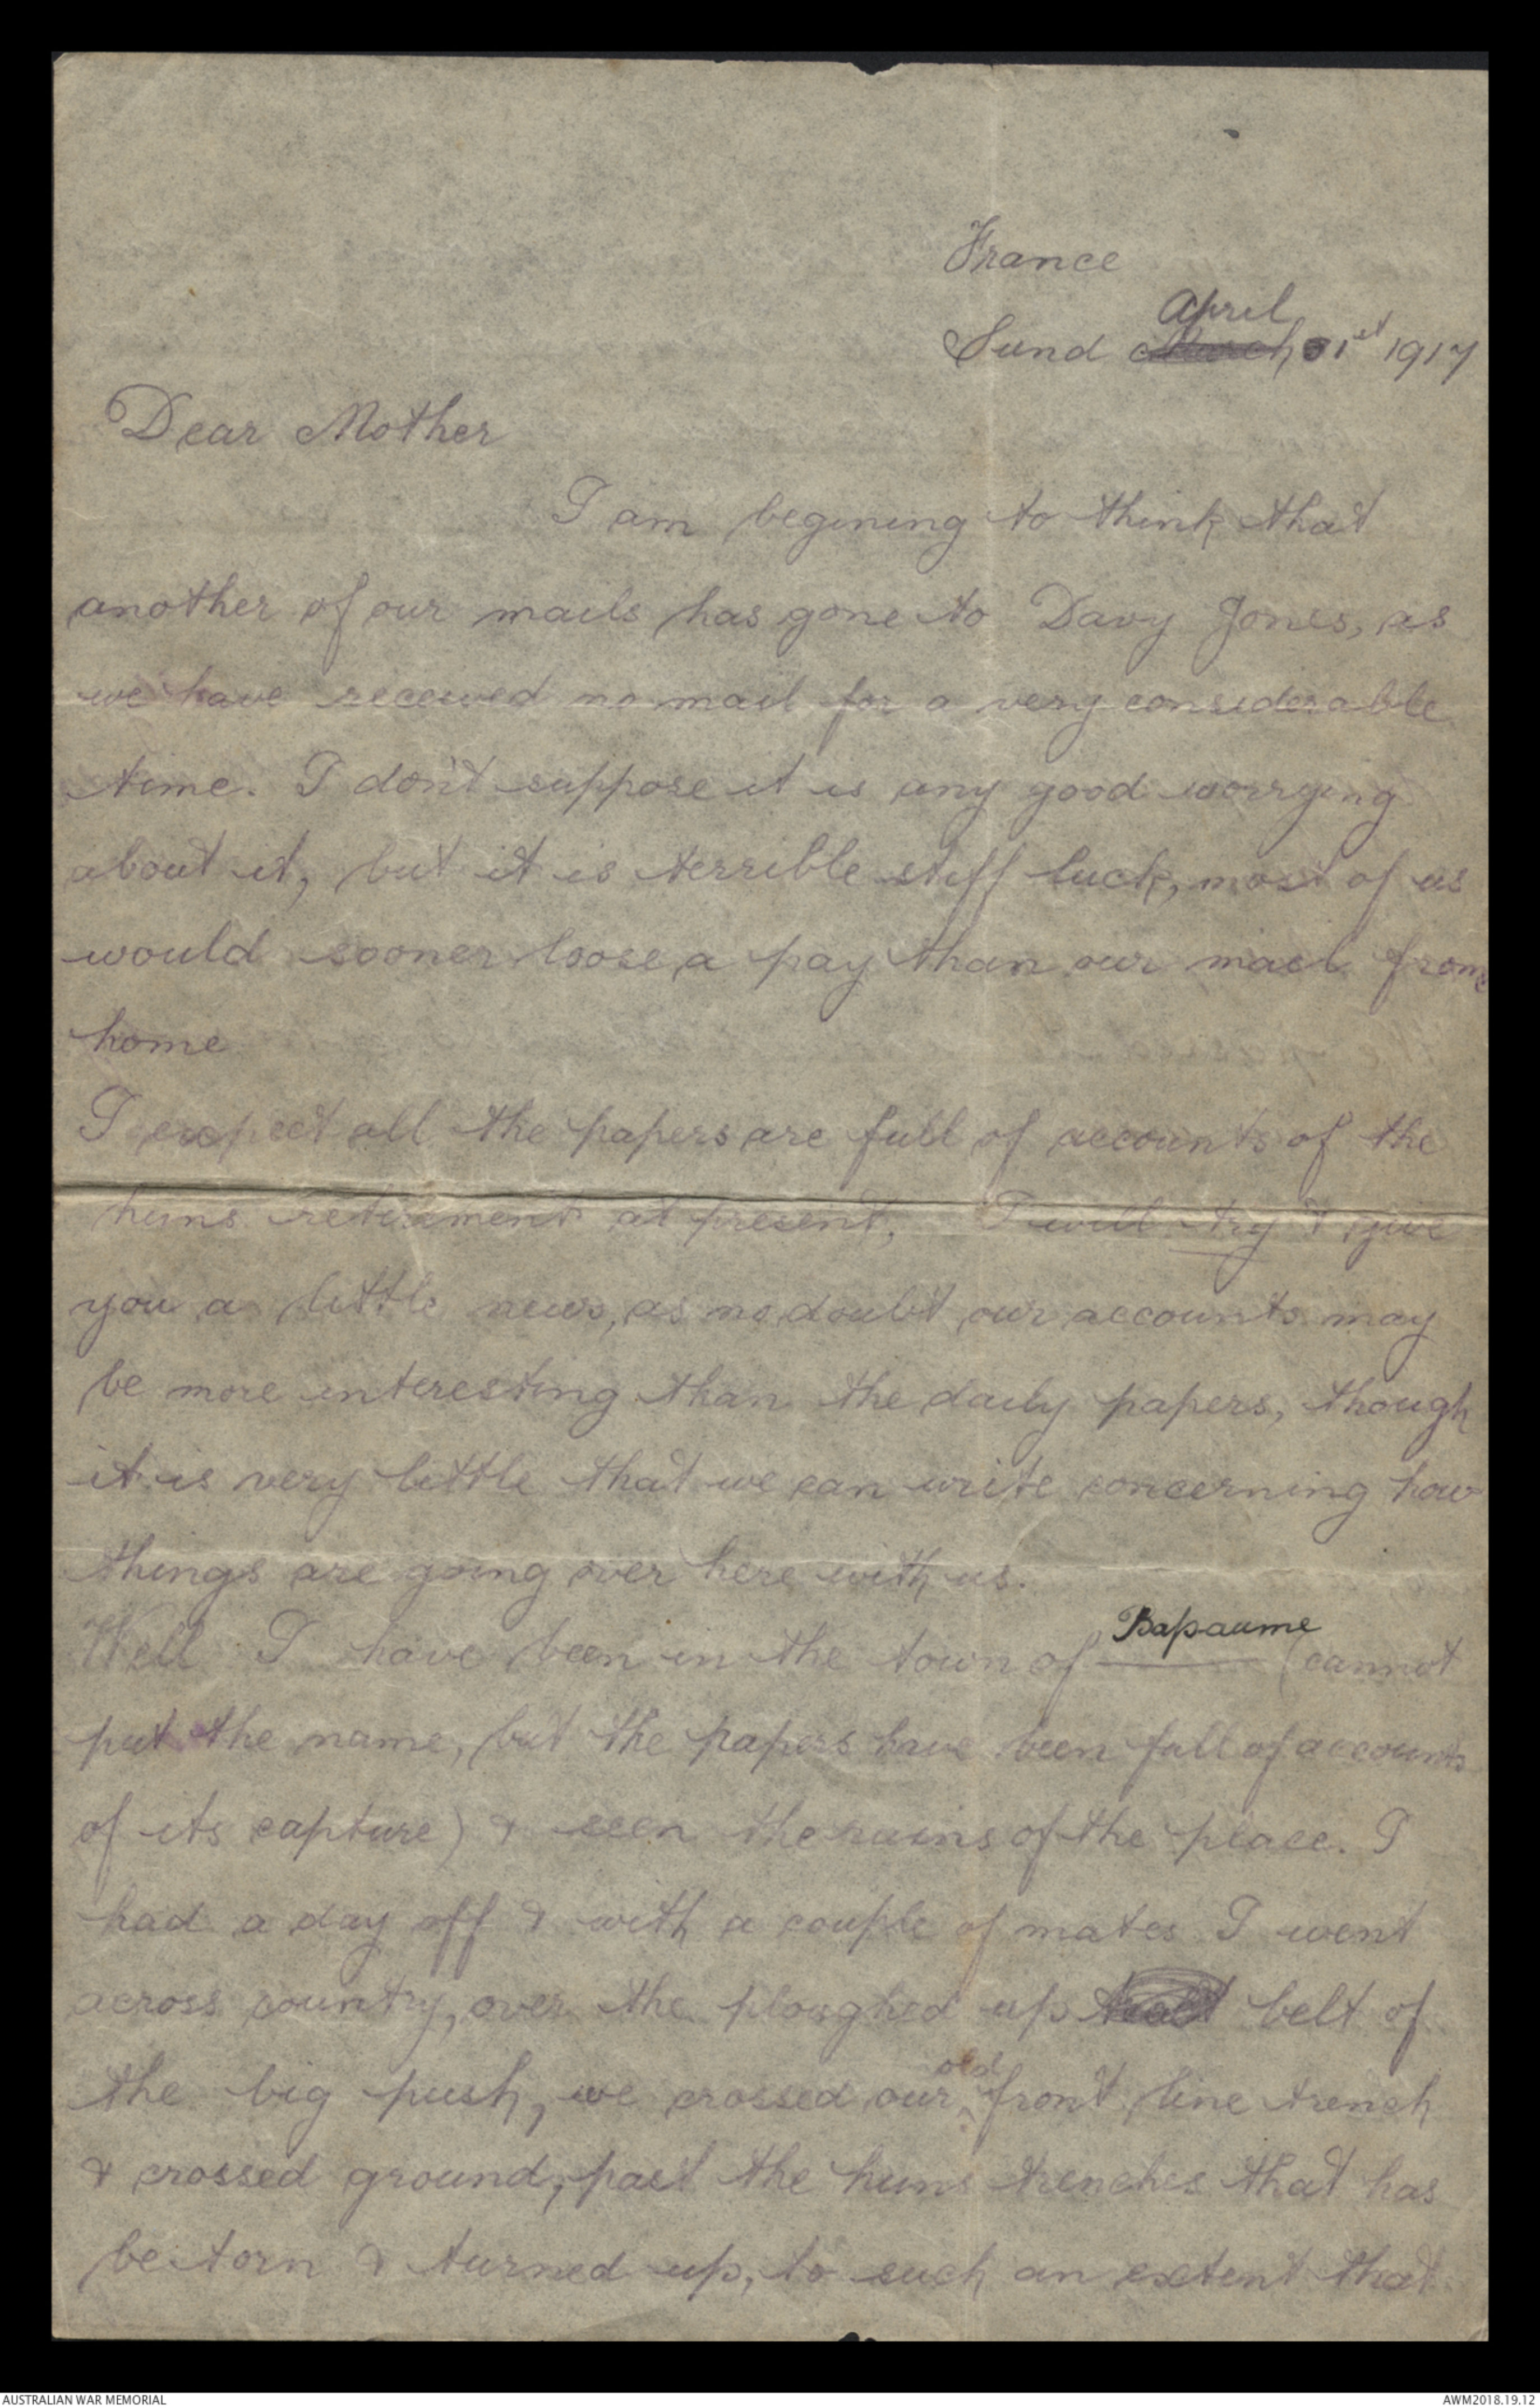 France
April
Sund March 01st 1917
Dear Mother
I am begining to think that
another of our mails has gone to Davy Jones, as
we have received no mail for a very considerable
time. I don't suppose it is any good worrying
about it, but it is terrible stiff luck, most of us
would sooner loose a pay than our mail from
home
I expect all the papers are full of accounts of the
huns retirement at present. I will try & give
you a little news, as no doubt our accounts may
be more interesting than the daily papers, though
it is very little that we can write concerning how
things are going over here with us.
Bapaume
Well I have been in the town of ——— (cannot
put the name, but the papers have been full of accounts
of its capture) & seen the ruins of the place. I
had a day off & with a couple of mates I went
across country, over the ploughed up belt of
old
the big push, we crossed our front line trench
& crossed ground, past the huns trenches that has
be torn & turned up, to such an extent that
AUSTRALIAN WAR MEMORIAL
AWM2018.19.12